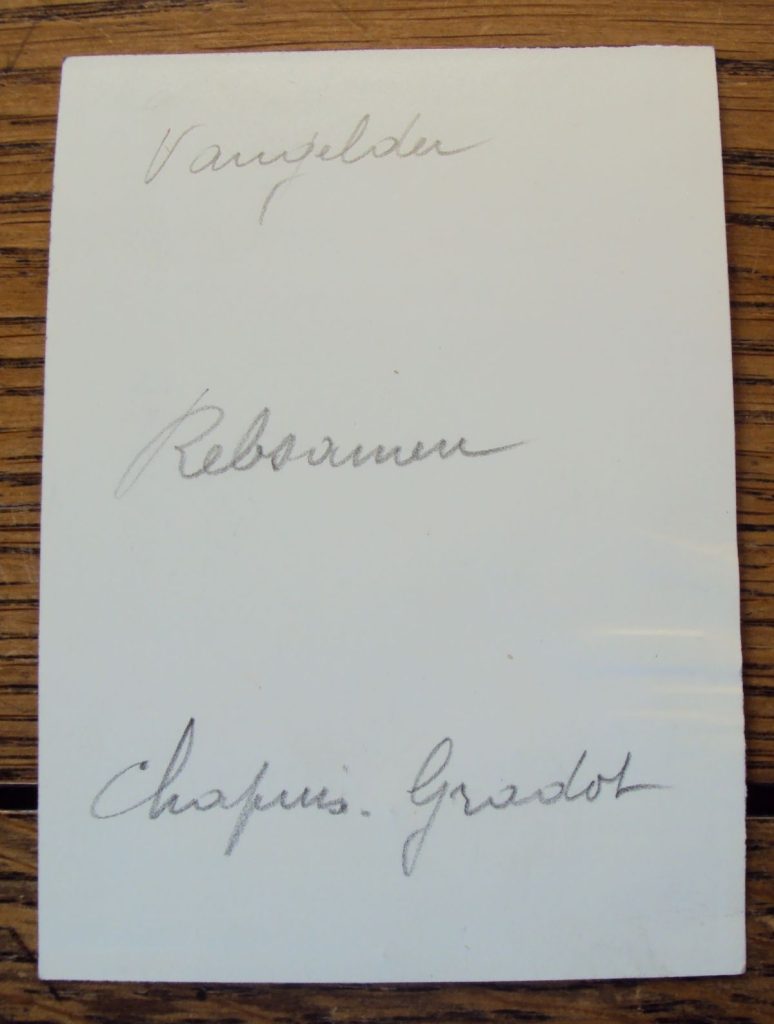 Vangelder
Rebsamen
Chapuis. Gradot